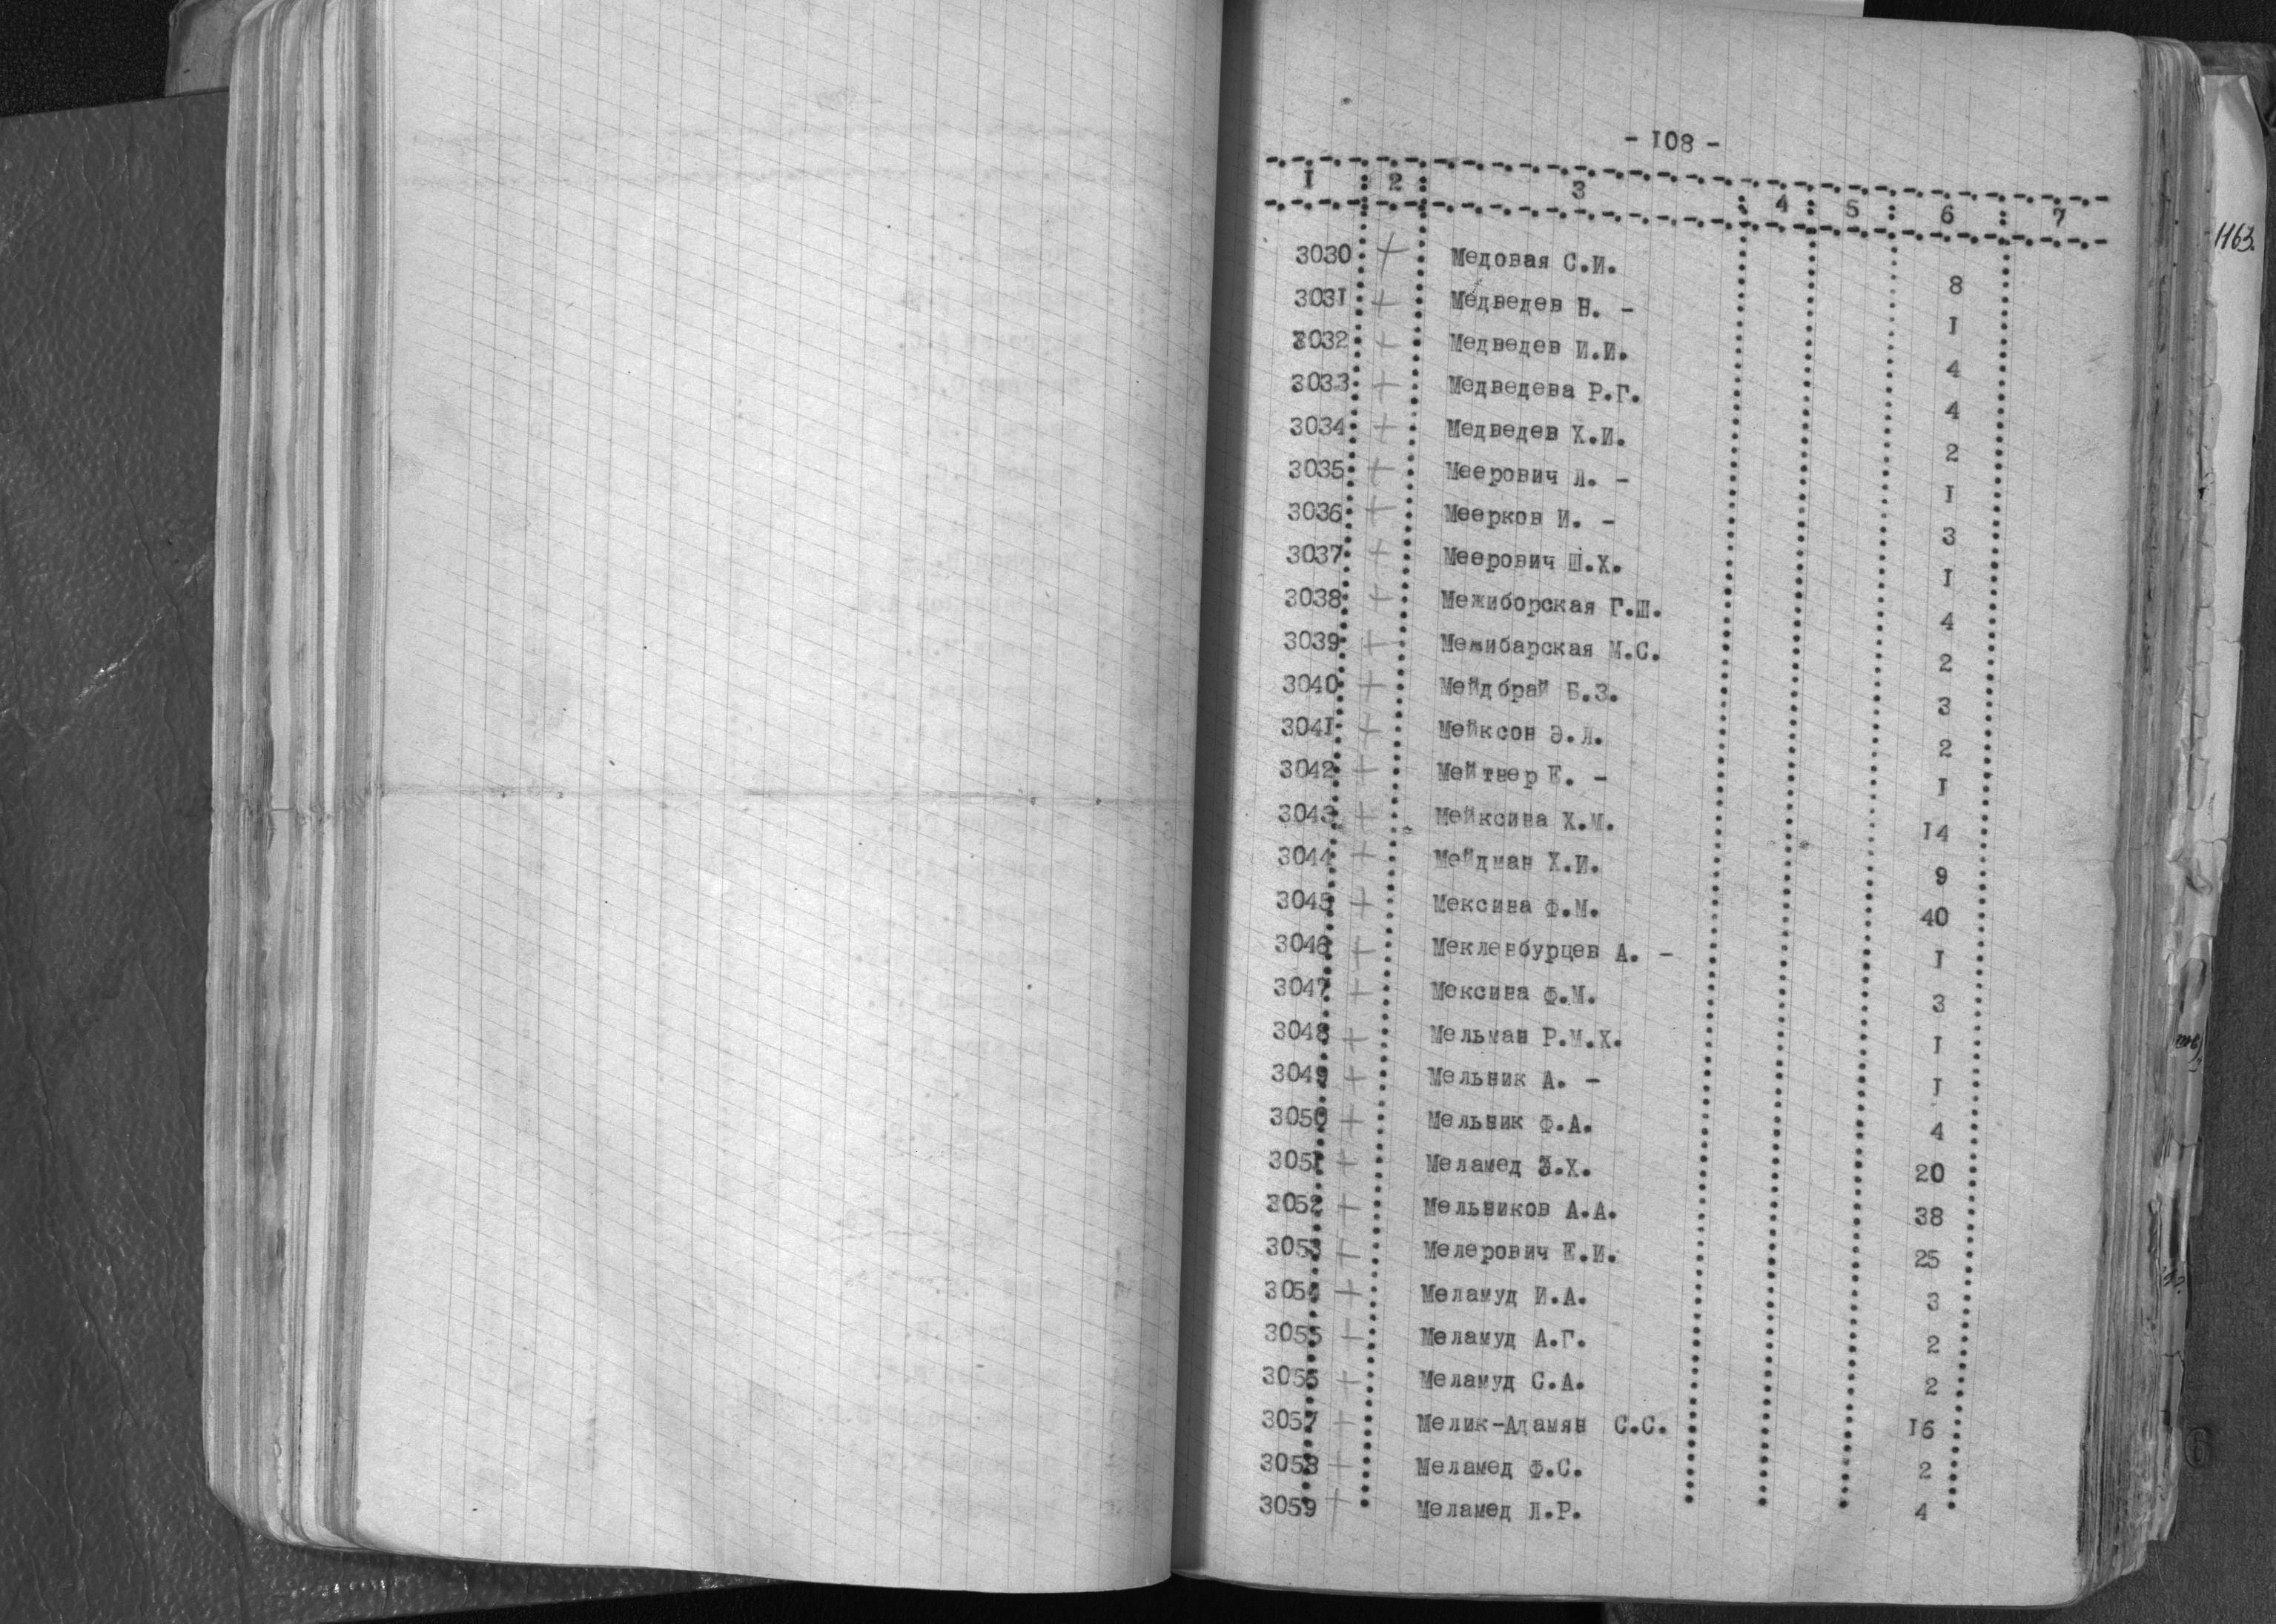 - I08 -
I : 2 : 3 : 4 : 5 : 6 : 7
3030 + Медовая С.И. 8
3031 + Медведев Н. - I
3032 + Медведев И.И. 4
3033 + Медведева Р.Г. 4
3034 + Медведев Х.И. 2
3035 + Меерович Л. - I
3036 + Меерков И. - 3
3037 + Меерович Ш.Х. I
3038 + Межиборская Г.Ш. 4
3039 + Межибарская М.С. 2
3040 + Мейдбрай Б.З. 3
304I + Мейксон Э.Л. 2
3042 + Мейтвер Е. - I
3043 + Мейксина Х.М. I4
3044 + Мейдман Х.И. 9
3045 + Мексина Ф.М. 40
3046 + Мекленбурцев А. - I
3047 + Мексина Ф.М. 3
3048 + Мельман Р.М.Х. I
3049 + Мельник А. - I
3050 + Мельник Ф.А. 4
305I + Меламед З.Х. 20
3052 + Мельников А.А. 38
3053 + Мелерович Е.И. 25
3054 + Меламуд И.А. 3
3055 + Меламуд А.Г. 2
3056 + Меламуд С.А. 2
3057 + Мелик-Адамян С.С. I6
3058 + Меламед Ф.С. 2
3059 + Меламед Л.Р. 4
1163.